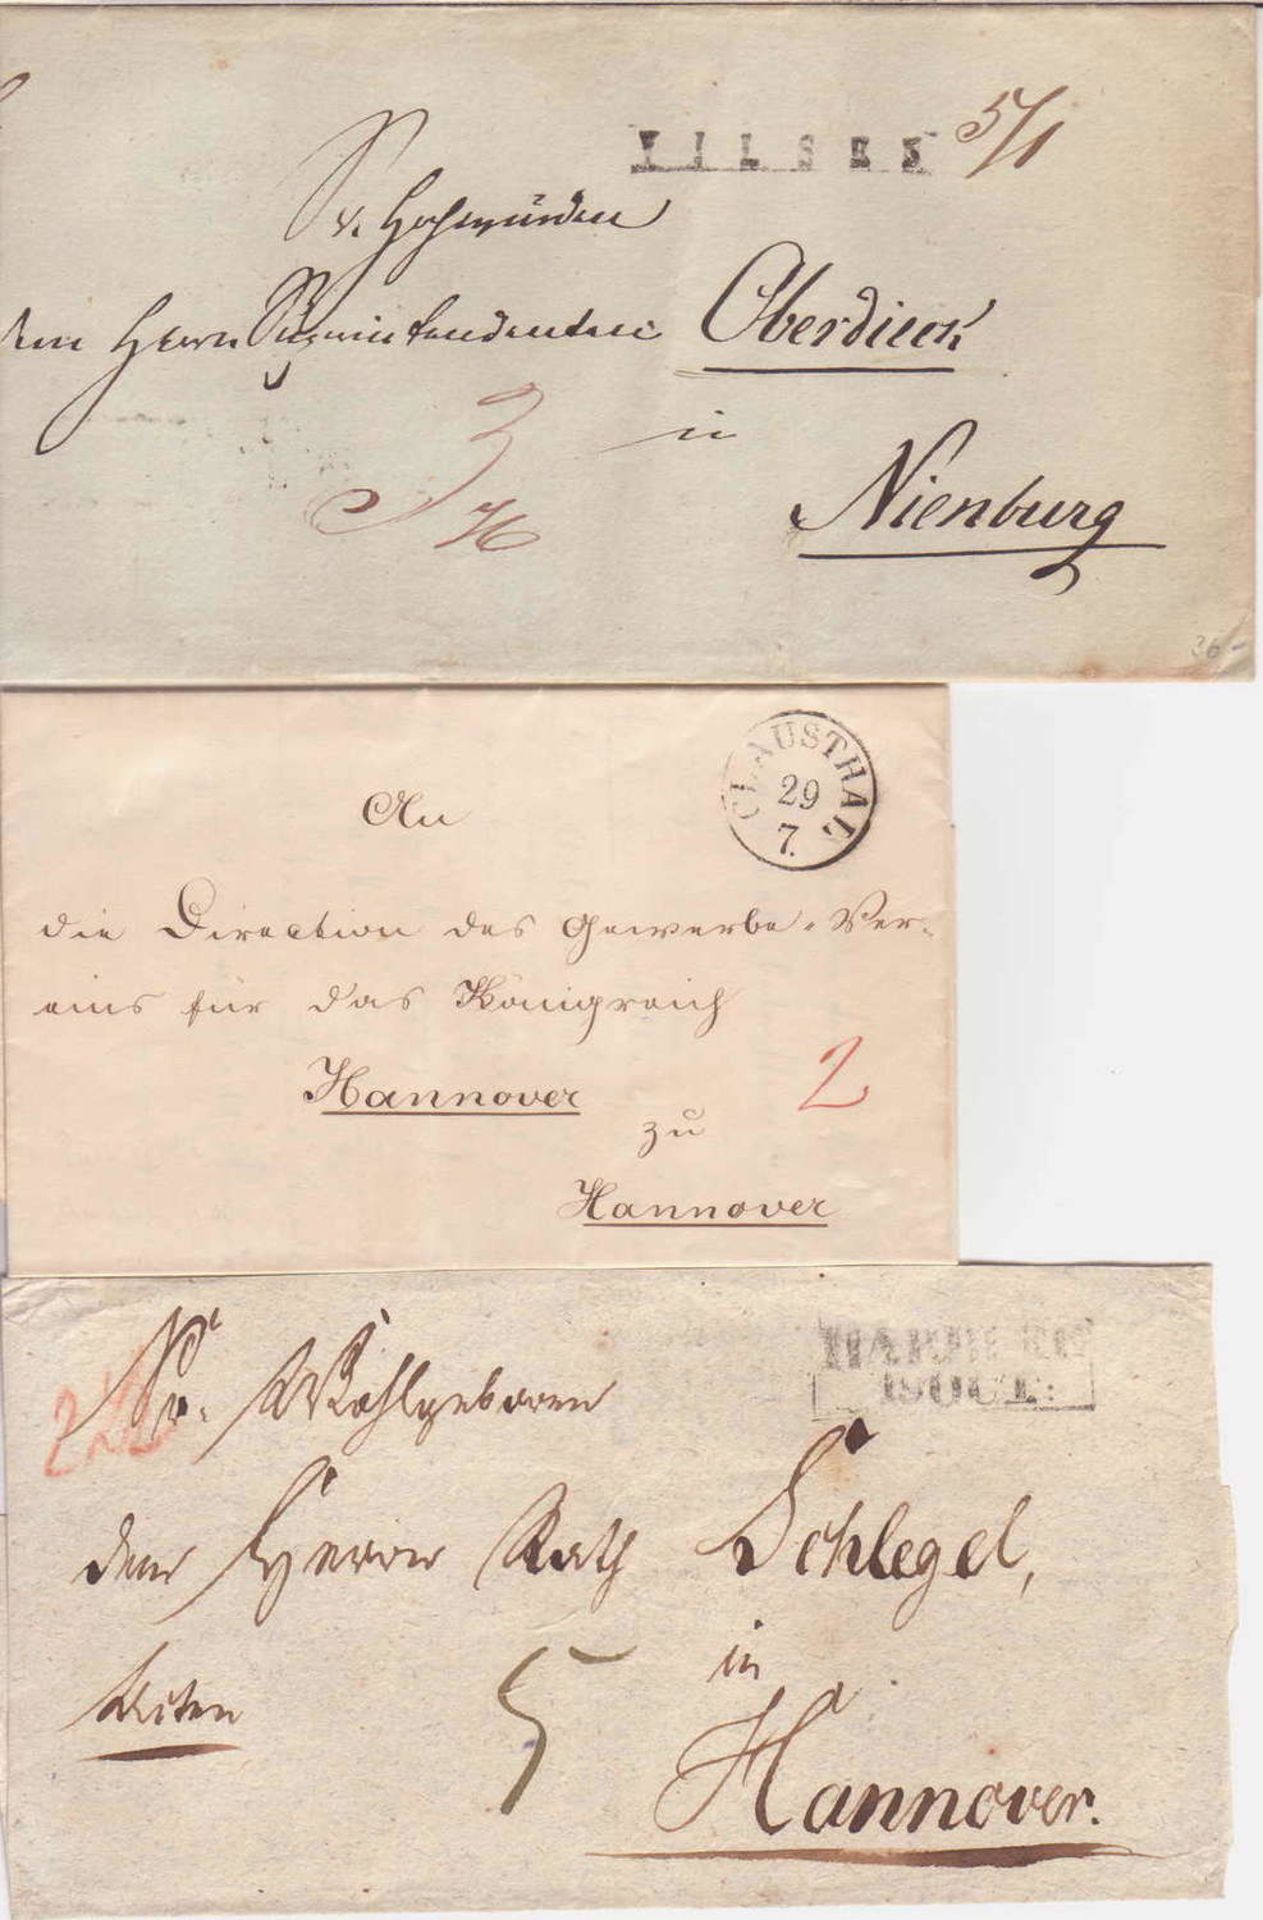 VILSEN 5/1
Sr. Hochwürden
dem Herrn Superintendenten Oberdieck
3
in
Nienburg
36-
CLAUSTHAL
29
7.
An
die Direction des Gewerbe-Ver-
eins für das Königreich
Hannover
2
zu
Hannover
HARBURG
Sr. Wohlgeboren
dem Herrn Rath Schlegel,
in
Acten
5
Hannover.